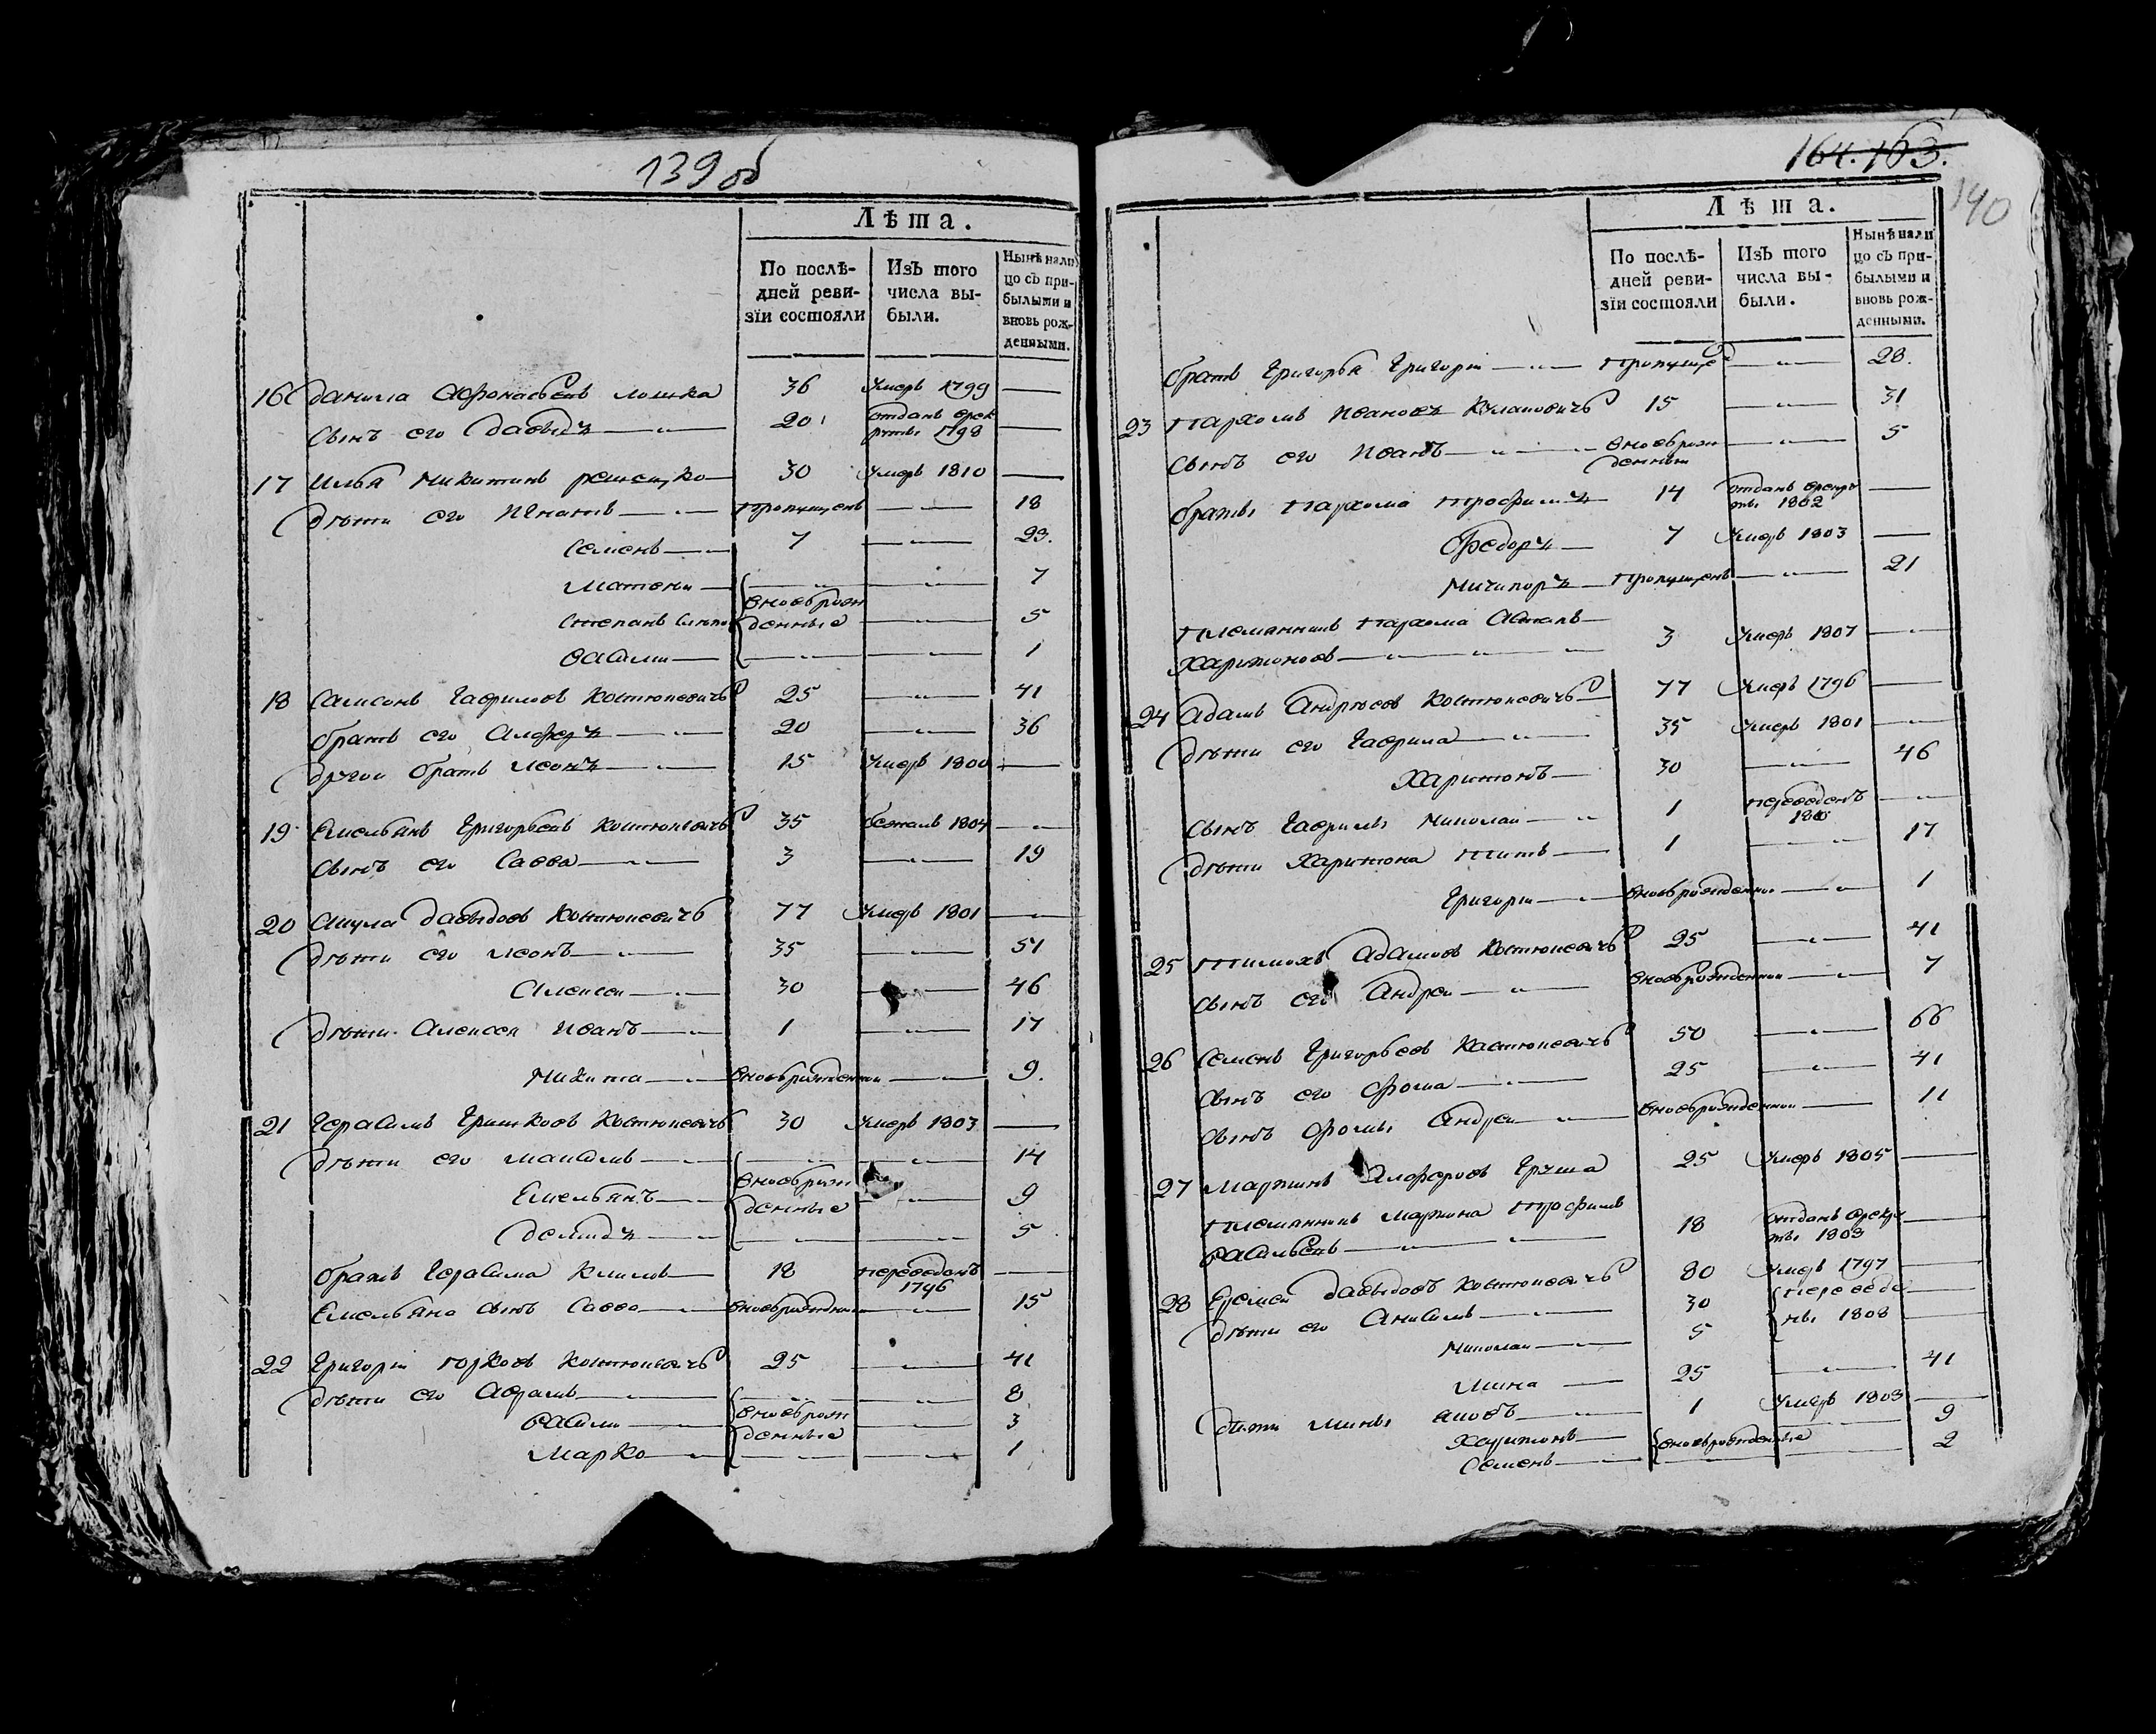 139 об
Лѣта.
По послѣ-
дней реви-
зїи состояли
Изъ того
числа вы-
были.
Нынѣ нали
цо съ при-
былыми и
вновь рож-
денными.
16 Данила Афонасьевъ 36 Умеръ 1799
Сынъ его Давыдъ 20 отданъ врек
руты 1798
17 Илья Микитинъ 30 Умеръ 1810
Дѣти его Игнатъ пропущенъ 18
Семенъ 7 23.
Матвеи 7
вновьрож
Степанъ денные 5
Василии 1
18 Самсонъ Гавриловъ Костюкевичъ 25 41
братъ его Алферъ 20 36
Другои братъ Леонъ 15 Умеръ 1800
19 Емельянъ Григорьевъ Костюкевичъ 35 бежалъ 1804
Сынъ его Савва 3 19
20 Давыдовъ Костюкевичъ 77 Умеръ 1801
Дѣти его Леонъ 35 51
Алексеи 30 46
Дѣти Алексея Иванъ 1 17
Микита вновьрожденнои 9.
21 Герасимъ Гришковъ Костюкевичъ 30 Умеръ 1803
Дѣти его Максимъ 14
вновьрож
Емельянъ денные 9
Демидъ 5
братъ Герасима Климъ 18 переведенъ
1796
Емельяна сынъ Савва вновьрожденнои 15
22 Григореи Юрковъ Костюкевичъ 25 41
Дѣти его Абрамъ 8
вновьрож
Василии денные 3
Марко 1
164. 163.
140
Лѣта.
По послѣ-
дней реви-
зїи состояли
Изъ того
числа вы-
были.
Нынѣ нали
цо съ при-
былыми и
вновь рож-
денными.
братъ Григорья Григореи пропуще 28.
23 Пархомъ Ивановъ 15 31
Сынъ его Иванъ вновьрож 5
денныи
братьы Пархома Трофимъ 14 отданъ врекру
ты 1802
Федоръ 7 Умеръ 1803
Ничипоръ пропущенъ 21
Племянникъ Пархома
Харитоновъ 3 Умеръ 1807
24 Адамъ Андрѣевъ Костюкевичъ 77 Умеръ 1796
Дѣти его Гаврила 35 Умеръ 1801
Харитонъ 30 46
Сынъ Гаврилы Миколаи 1 переведенъ
Дѣти Харитона Титъ 1 17
Григореи вновьрожденнои 1
25 Тимохъ Адамовъ Костюкевичъ 25 41
Сынъ его Андреи вновьрожденнои 7
26 Семенъ Григорьевъ Костюкевичъ 50 66
Сынъ его Фома 25 41
Сынъ Фомы Андреи вновьрожденнои 11
27 Мартинъ Алферовъ Груша 25 Умеръ 1805
Племянникъ Мартина Трофимъ
Васильевъ 18 отданъ врекру
ты 1809
28 Еремеи Давыдовъ Костюкевичъ 80 Умеръ 1797
Дѣти его Анисимъ 30 переведе
Миколаи 5 ны 1808
Мина 25 41
Дѣти Мины 1 Умеръ 1803
Харитонъ вновьрожденные 9
Семенъ 2